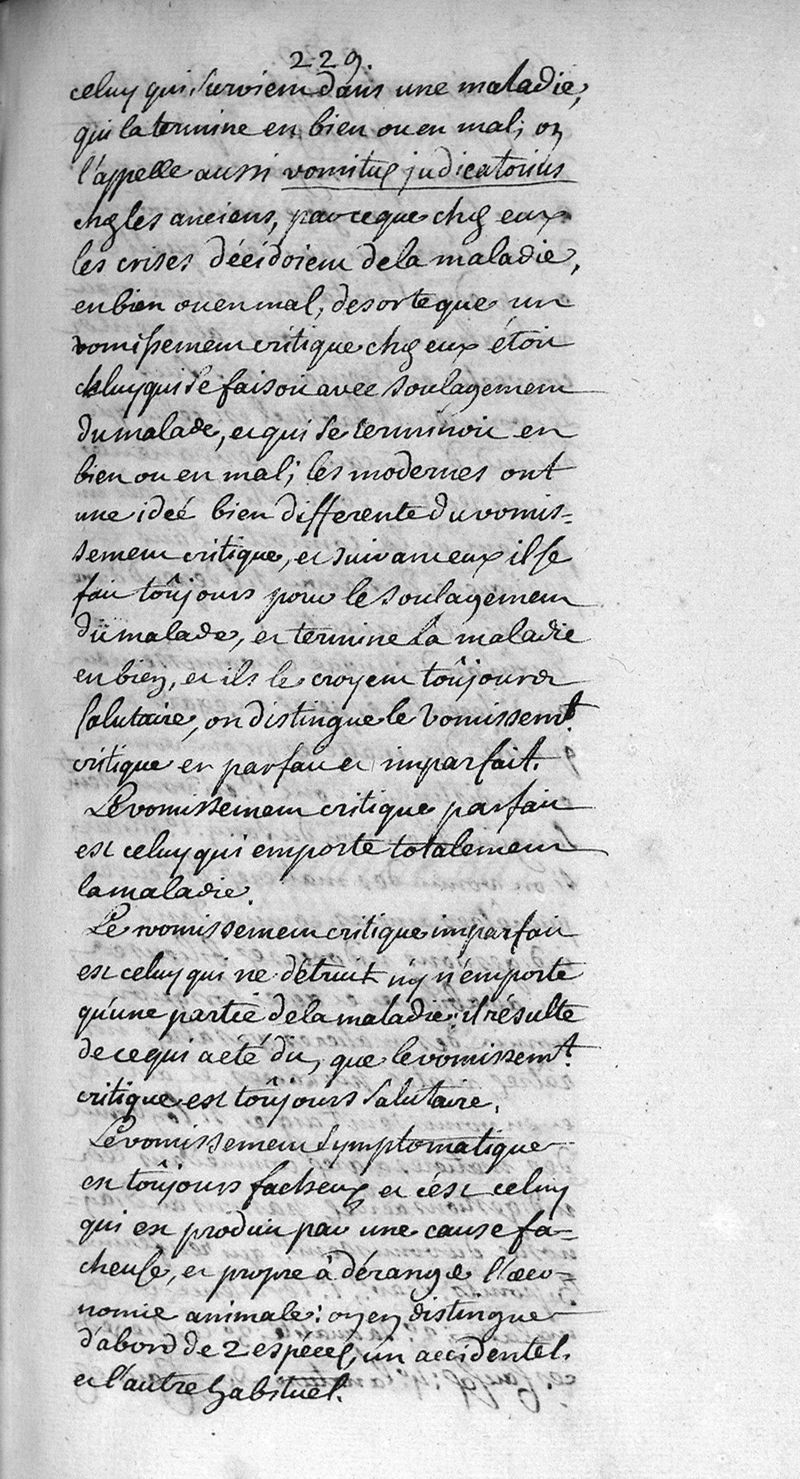 229.
celuy qui survient dans une maladie,
qui la termine en bien ou en mal; on
l'appelle aussi vomitus judicatorius
chés les anciens, parceque chés eux
les crises décidoient de la maladie,
en bien ou en mal; desorteque un
vomissement critique chés eux étoit
celuy qui se faisoit avec soulagement
du malade, et qui se terminoit en
bien ou en mal; les modernes ont
une ideé bien differente du vomis=
sement critique, et suivant eux il se
fait toûjours pour le soulagement
du malade, et termine la maladie
en bien, et ils le croyent toûjours
salutaire, on distingue le vomissemt.
critique en parfait et imparfait.
Le vomissement critique parfait
est celuy qui emporte totalement
la maladie.
Le vomissement critique imparfait
est celuy qui ne détruit n'y n'emporte
qu'une partie de la maladie: il résulte
de ce qui a été du, que le vomissemt.
critique est toûjours salutaire.
Le vomissement symptomatique
est toûjours facheux et c'est celuy
qui est produit par une cause fa=
cheuse, et propre à déranger l'œco=
nomie animale: on en distingue
d'abord de 2 espéces, un accidentel.
et l'autre habituel.